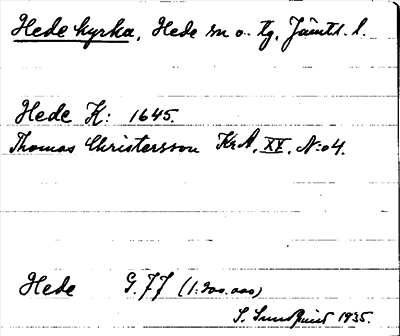 Hede kyrka, Hede sn o. tg, Jämtl. l.
Hede K: 1645.
Thomas Christersson KrA, XV, N:o 4.
Hede G.FF (1:200.000)
S. Sundquist 1935.